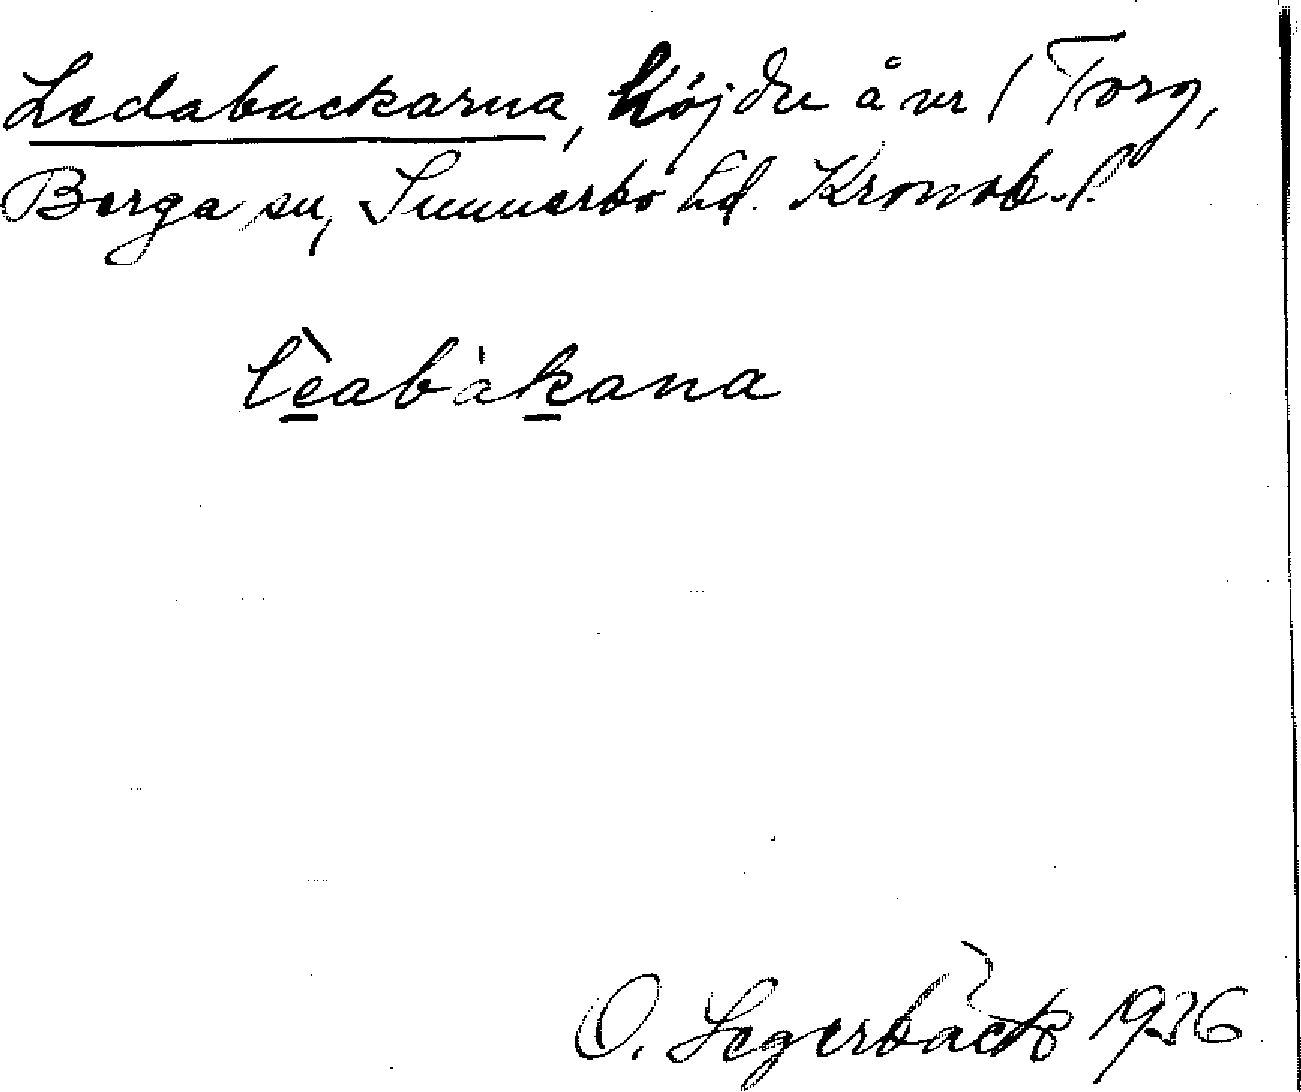 Ledabackarna, höjder å nr 1 Torg,
Berga sn, Sunnerbo hd. Kronob. l.
lèabàkana
O. Segerbäck 1936